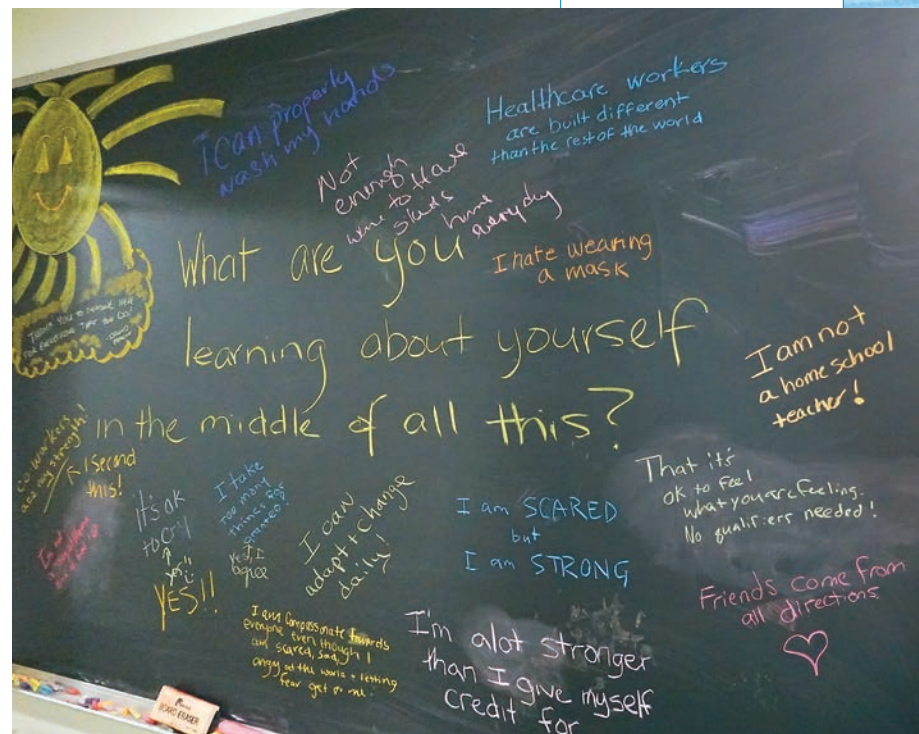 I can properly
wash my hands
Healthcare workers
are built different
than the rest of the world
Not
enough
wine to have
slacks
home
everyday
I hate wearing
a mask
What are you
learning about yourself
in the middle of all this?
I am not
a home school
teacher!
Co-workers
are my strength!
I second
this!
It's ok
to cry
yes!!
YES!!
I take
too many
things for
granted!
YES, I
agree
I can
adapt + change
daily!
I am SCARED
but
I am STRONG
That it's
ok to feel
what you are feeling.
No qualifiers needed!
Friends come from
all directions
I am compassionate towards
everyone even though I
am scared, sad,
angry at the world + letting
fear get to me.
I'm alot stronger
than I give myself
credit for
BOARD ERASER